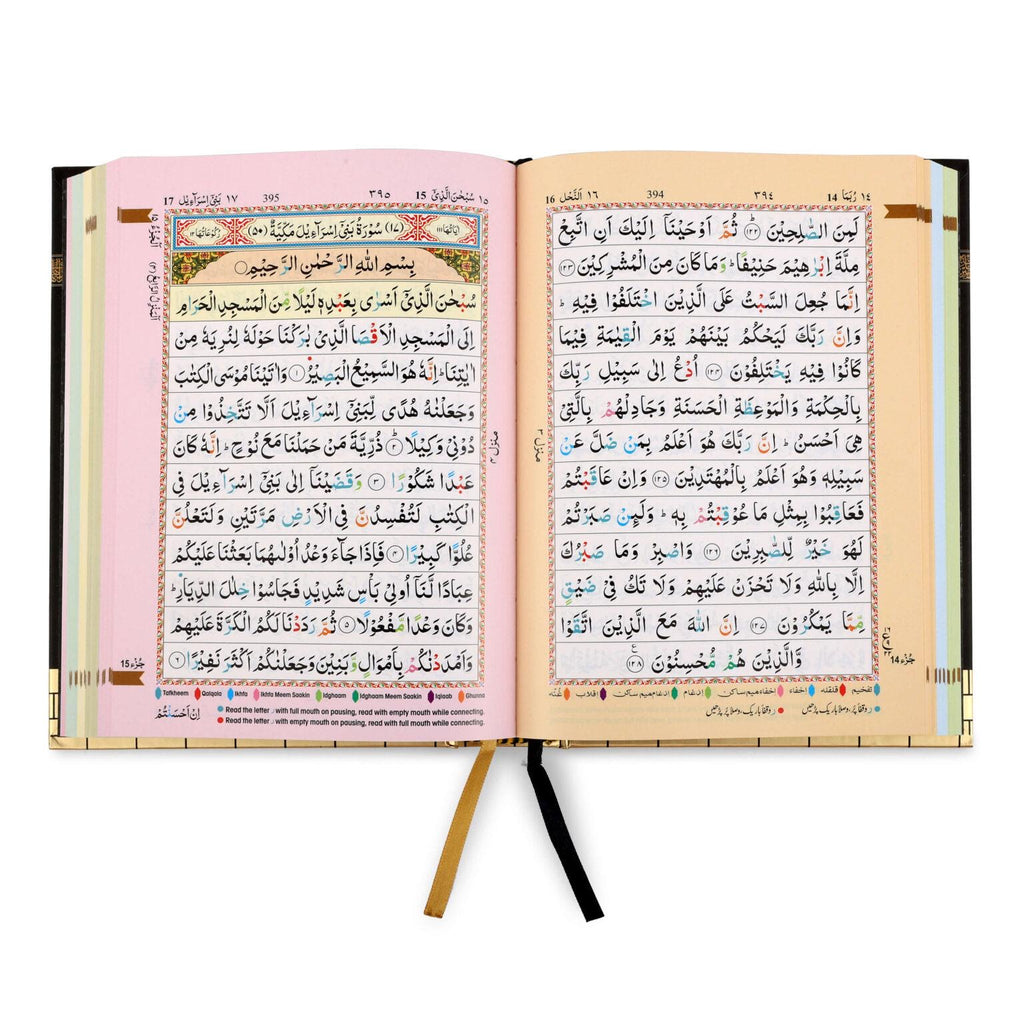 ١٤ رُبَمَا 14 ٣٩٤ 394 ١٦ اَلنَّحْل 16
لَمِنَ الصّٰلِحِيْنَ ﴿١٢٢﴾ ثُمَّ اَوْحَيْنَاۤ اِلَيْكَ اَنِ اتَّبِعْ
مِلَّةَ اِبْرٰهِيْمَ حَنِيْفًاؕ وَمَا كَانَ مِنَ الْمُشْرِكِيْنَ ﴿١٢٣﴾
اِنَّمَا جُعِلَ السَّبْتُ عَلَى الَّذِيْنَ اخْتَلَفُوْا فِيْهِؕ
وَاِنَّ رَبَّكَ لَيَحْكُمُ بَيْنَهُمْ يَوْمَ الْقِيٰمَةِ فِيْمَا
كَانُوْا فِيْهِ يَخْتَلِفُوْنَ ﴿١٢٤﴾ اُدْعُ اِلٰى سَبِيْلِ رَبِّكَ
بِالْحِكْمَةِ وَالْمَوْعِظَةِ الْحَسَنَةِ وَجَادِلْهُمْ بِالَّتِيْ
هِيَ اَحْسَنُؕ اِنَّ رَبَّكَ هُوَ اَعْلَمُ بِمَنْ ضَلَّ عَنْ
سَبِيْلِهٖ وَهُوَ اَعْلَمُ بِالْمُهْتَدِيْنَ ﴿١٢٥﴾ وَاِنْ عَاقَبْتُمْ
فَعَاقِبُوْا بِمِثْلِ مَا عُوْقِبْتُمْ بِهٖؕ وَلَئِنْ صَبَرْتُمْ
لَهُوَ خَيْرٌ لِّلصّٰبِرِيْنَ ﴿١٢٦﴾ وَاصْبِرْ وَمَا صَبْرُكَ
اِلَّا بِاللّٰهِ وَلَا تَحْزَنْ عَلَيْهِمْ وَلَا تَكُ فِيْ ضَيْقٍ
مِّمَّا يَمْكُرُوْنَ ﴿١٢٧﴾ اِنَّ اللّٰهَ مَعَ الَّذِيْنَ اتَّقَوْا
وَّالَّذِيْنَ هُمْ مُّحْسِنُوْنَ ﴿١٢٨﴾
منزل ٣
جُزْء 14
تفخیم قلقله اخفاء اخفاء میم ساکن ادغام ادغام میم ساکن اقلاب غنّه
ر وقفاً پُر، وصلاً باریک پڑھیں ر وقفاً باریک، وصلاً پُر پڑھیں
١٥ سُبْحٰنَ الَّذِيْۤ 15 ٣٩٥ 395 ١٧ بَنِيْۤ اِسْرَآءِيْل 17
اٰيَاتُهَا ١١١ (١٧) سُوْرَةُ بَنِيْۤ اِسْرَآءِيْلَ مَكِّيَّةٌ (٥٠) رُكُوْعَاتُهَا ١٢
بِسْمِ اللّٰهِ الرَّحْمٰنِ الرَّحِيْمِ
سُبْحٰنَ الَّذِيْۤ اَسْرٰى بِعَبْدِهٖ لَيْلًا مِّنَ الْمَسْجِدِ الْحَرَامِ
اِلَى الْمَسْجِدِ الْاَقْصَا الَّذِيْ بٰرَكْنَا حَوْلَهٗ لِنُرِيَهٗ مِنْ
اٰيٰتِنَاؕ اِنَّهٗ هُوَ السَّمِيْعُ الْبَصِيْرُ ﴿١﴾ وَاٰتَيْنَا مُوْسَى الْكِتٰبَ
وَجَعَلْنٰهُ هُدًى لِّبَنِيْۤ اِسْرَآءِيْلَ اَلَّا تَتَّخِذُوْا مِنْ
دُوْنِيْ وَكِيْلًا ﴿٢﴾ ذُرِّيَّةَ مَنْ حَمَلْنَا مَعَ نُوْحٍؕ اِنَّهٗ كَانَ
عَبْدًا شَكُوْرًا ﴿٣﴾ وَقَضَيْنَاۤ اِلٰى بَنِيْۤ اِسْرَآءِيْلَ فِي
الْكِتٰبِ لَتُفْسِدُنَّ فِي الْاَرْضِ مَرَّتَيْنِ وَلَتَعْلُنَّ
عُلُوًّا كَبِيْرًا ﴿٤﴾ فَاِذَا جَآءَ وَعْدُ اُوْلٰىهُمَا بَعَثْنَا عَلَيْكُمْ
عِبَادًا لَّنَاۤ اُولِيْ بَاْسٍ شَدِيْدٍ فَجَاسُوْا خِلٰلَ الدِّيَارِؕ
وَكَانَ وَعْدًا مَّفْعُوْلًا ﴿٥﴾ ثُمَّ رَدَدْنَا لَكُمُ الْكَرَّةَ عَلَيْهِمْ
وَاَمْدَدْنٰكُمْ بِاَمْوَالٍ وَّبَنِيْنَ وَجَعَلْنٰكُمْ اَكْثَرَ نَفِيْرًا ﴿٦﴾
جُزْء 15
Tafkheem Qalqala Ikhfa Ikhfa Meem Saakin Idghaam Idghaam Meem Saakin Iqlaab Ghunna
Read the letter ر with full mouth on pausing, read with empty mouth while connecting.
Read the letter ر with empty mouth on pausing, read with full mouth while connecting.
اِنْ اَحْسَنْتُمْ